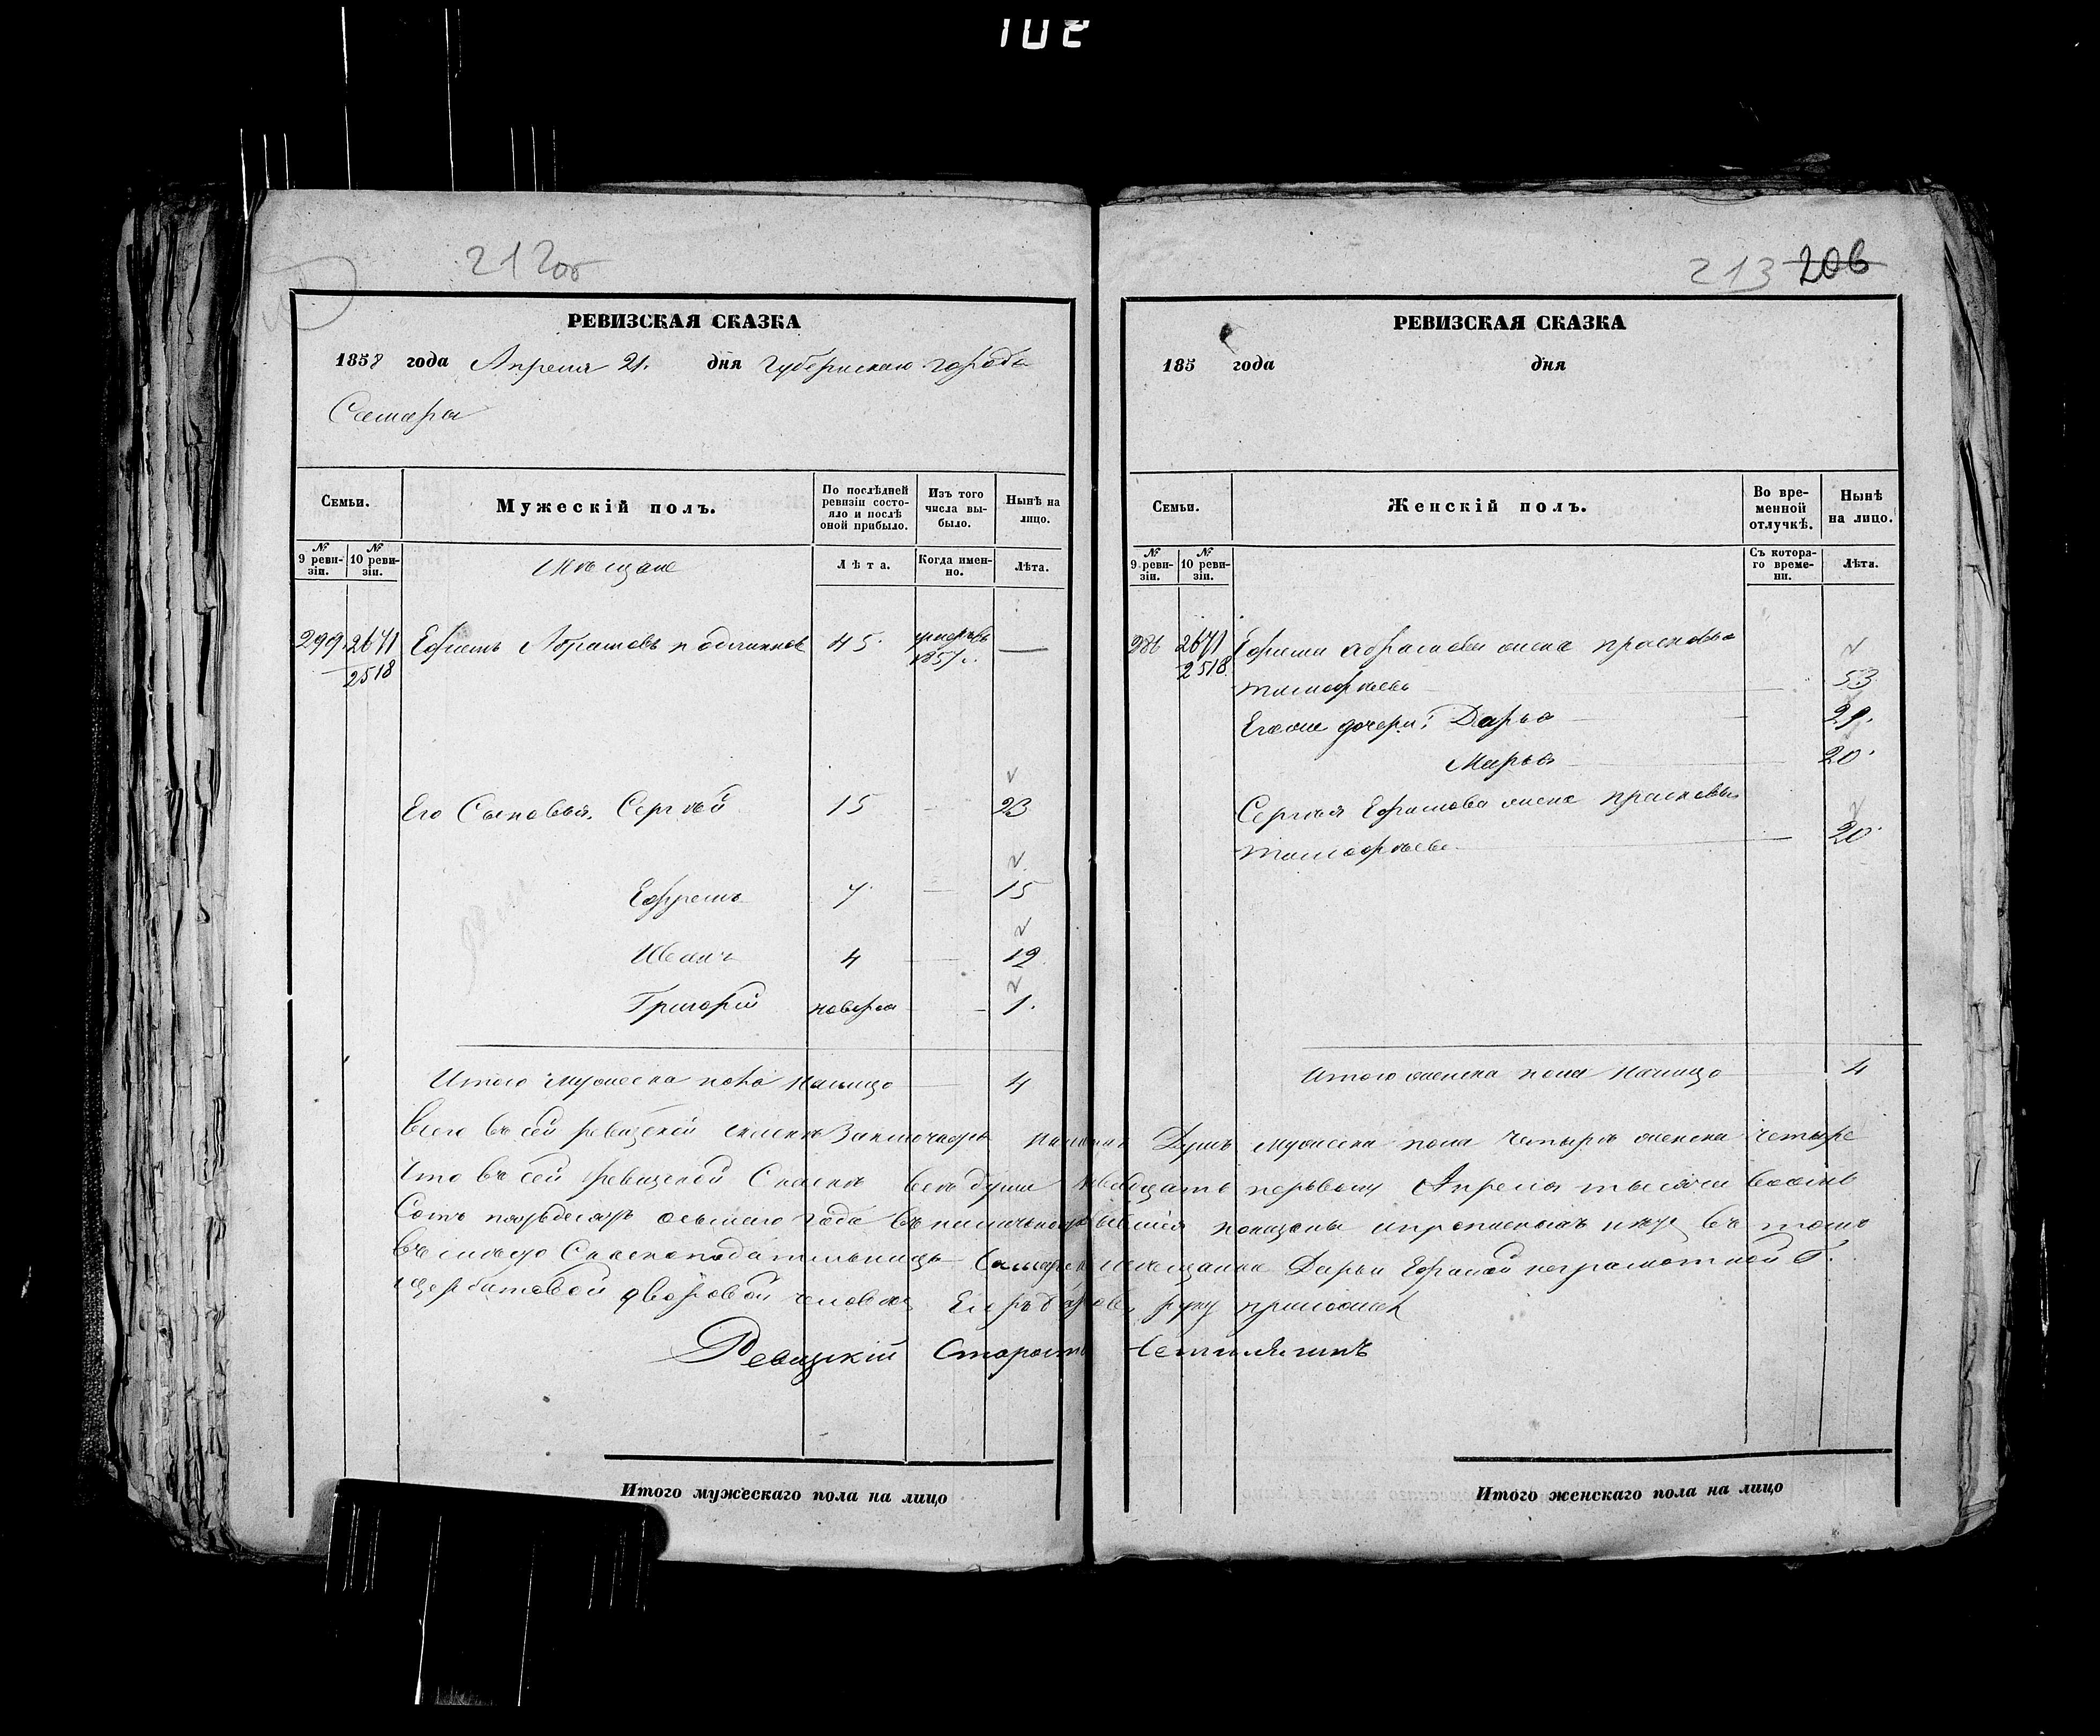 102
212об
РЕВИЗСКАЯ СКАЗКА
1858 года Апреля 21. дня Губернскаго города
Самары
Семьи.
Мужескій полъ.
По послѣдней ревизіи состояло и послѣ оной прибыло.
Изъ того числа выбыло.
Нынѣ на лицо.
№ 9 ревизіи.
№ 10 ревизіи.
Мещане
Лѣта.
Когда именно.
Лѣта.
299. 2671 Ефимъ Абрамовъ 45. —
2518 1857.
Его Сыновья. Сергѣй 15 — 23
Ефремъ 7. — 15
Иванъ 4 — 12
Григорій — 1.
Итого мужеска пола налицо — 4
213 206
РЕВИЗСКАЯ СКАЗКА
185 года дня
Семьи.
Женскій полъ.
Во временной отлучкѣ.
Нынѣ на лицо.
№ 9 ревизіи.
№ 10 ревизіи.
Съ котораго времени.
Лѣта.
286 2671 Ефима Абрамова жена прасковья
2518. тимофѣева 53.
Егоже дочери: Дарья 29.
Марья 20.
Сергѣя Ефимова жена прасковья
тимофѣева 20.
Итого женска пола налицо 4
Всего въ сей ревизской сказкѣ Заключается Душъ мужеска пола четыре женска четыре
Что въ сей ревизской Сказкѣ всѣ души первому Апреля тысяча восемь
Сотъ пятьдесятъ осьмаго года показаны и нетъ въ томъ
Сказкоподательницы Дарьи Ефимовой неграмотной
дворовой человекъ руку приложилъ
Ревизскій Староста
Итого мужескаго пола на лицо
Итого женскаго пола на лицо